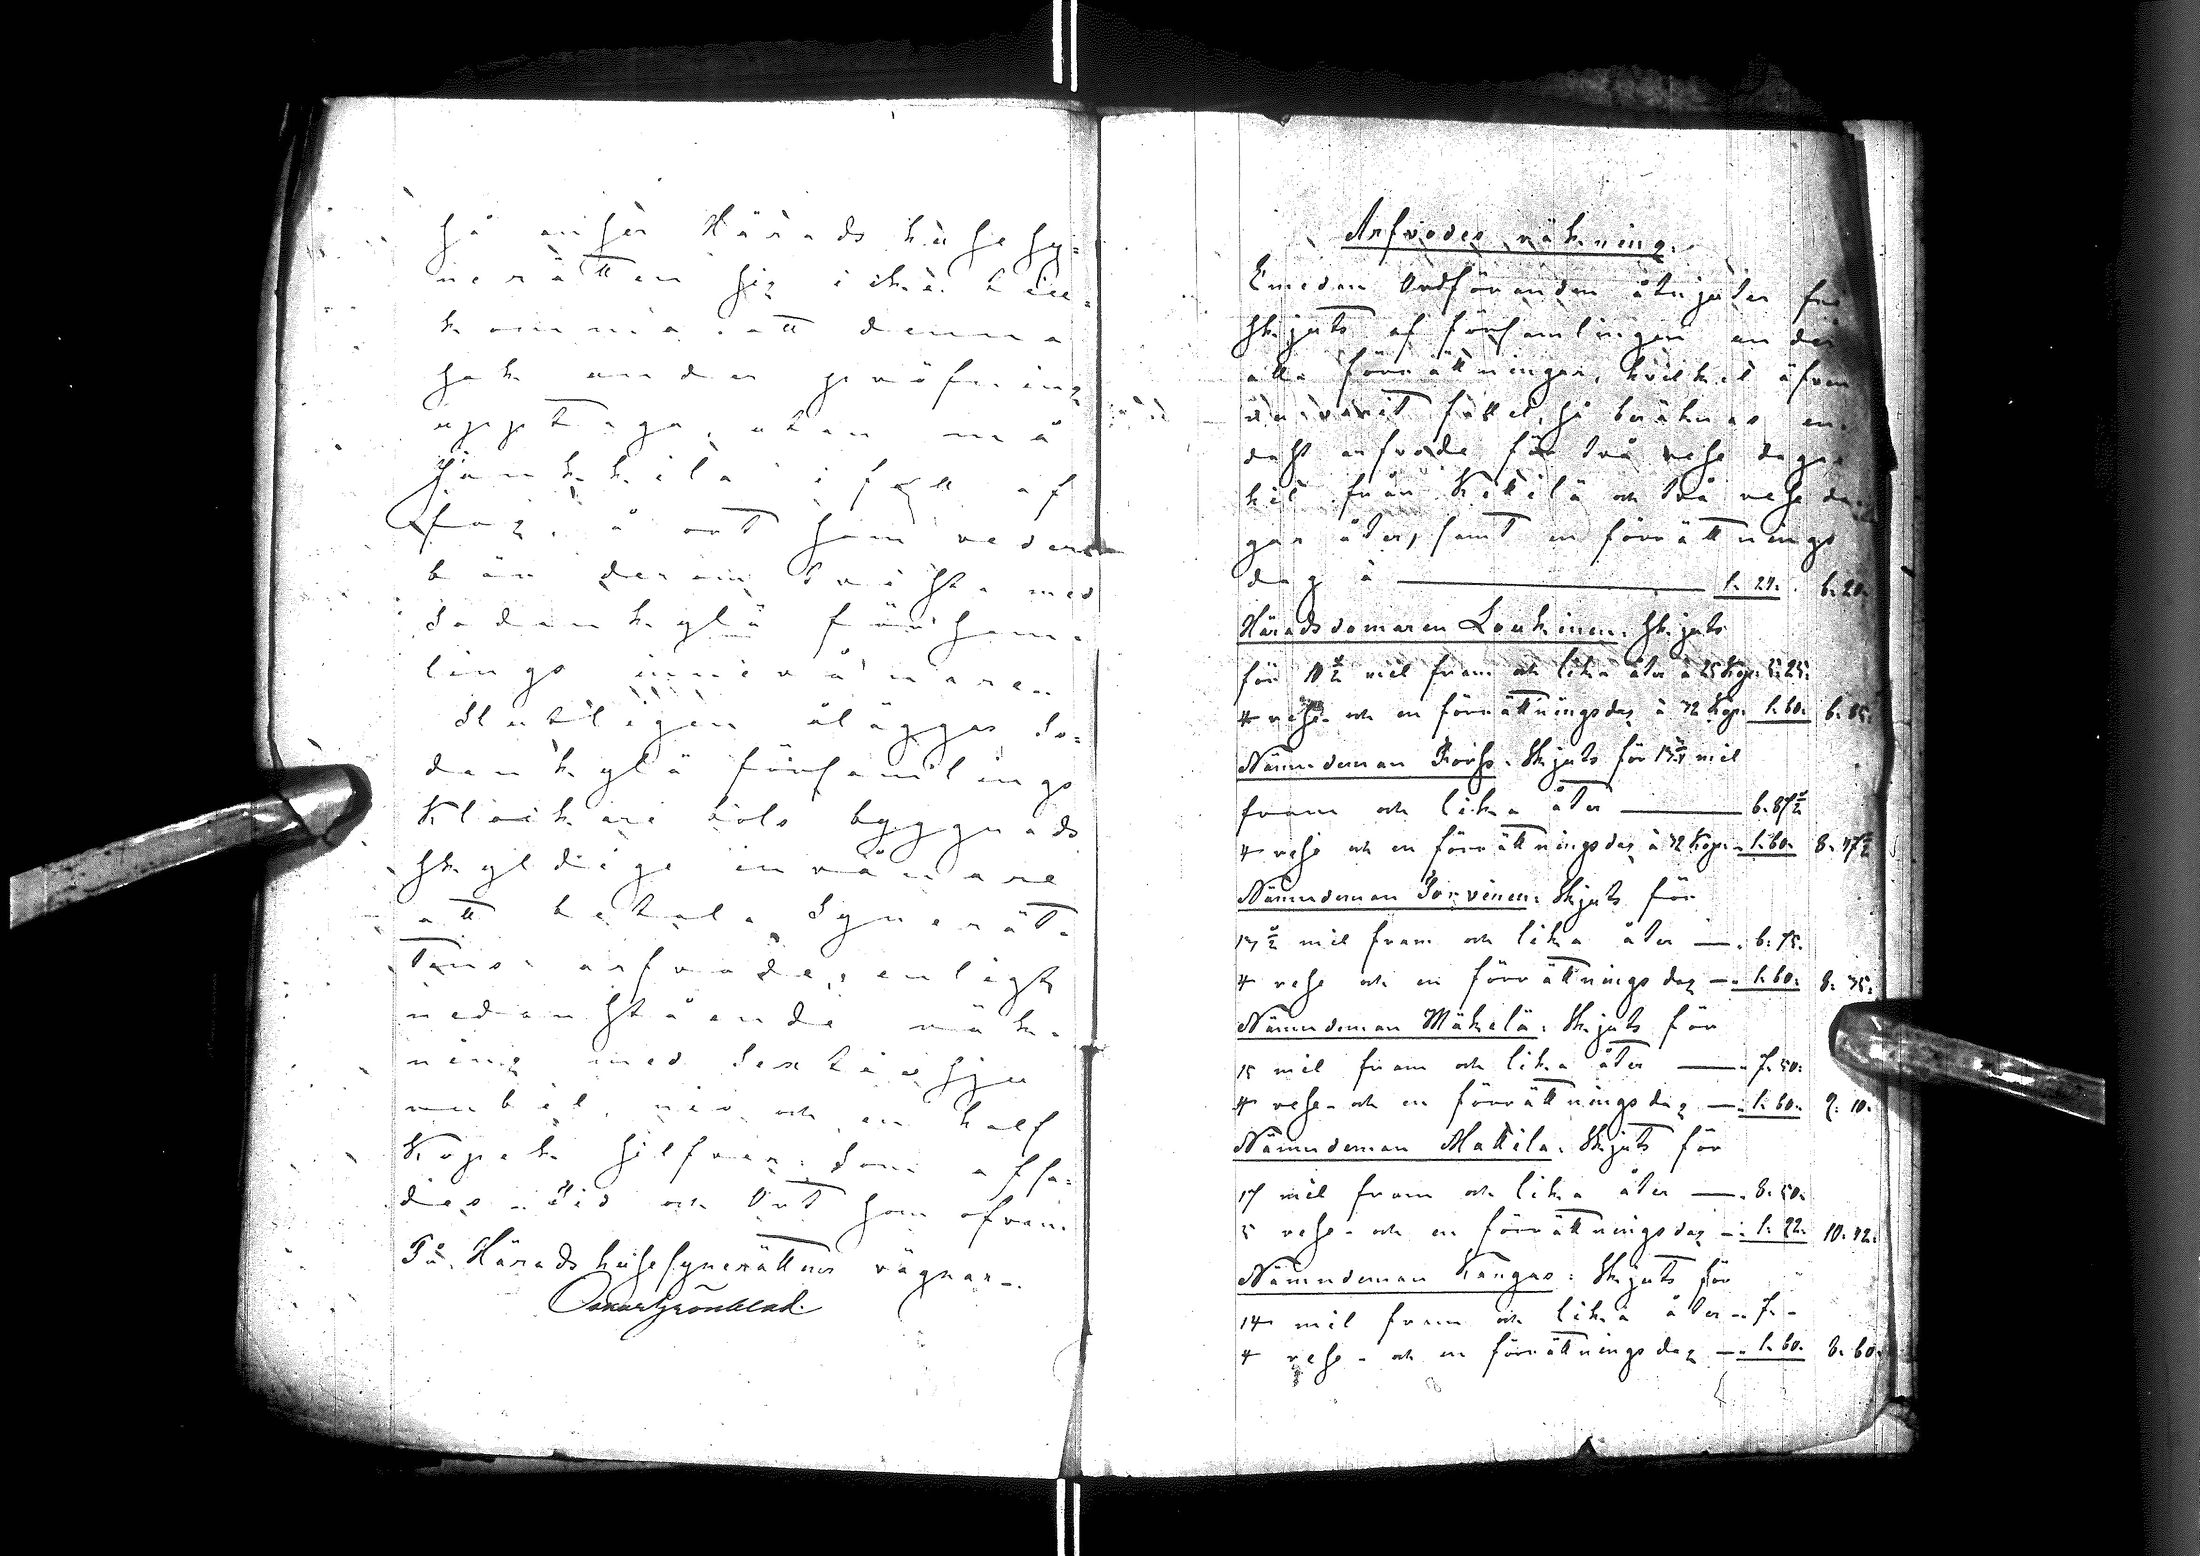 så anser Häradshusesy-
nerätten sig icke till-
komma att denna
sak under pröfning
upptaga, utan må
Junkkila i fall af
fog, å ort som veder-
bör derom tvista med
Sodankylä försam-
lings innevånare.
Slutligen ålägges So-
dankylä församlings
Klockarebols byggnads
skyldige invånare
att betala Synerät-
tens arfvode, enligt
nedanstående räk-
ning med Sextiosju
rubel, nio och en half
Kopek silfver. Som afsa-
des tid och Ort som ofvan.
På Häradshusesynerättens vägnar.
Oskar Grönblad.
Arfvodes räkning.
Emedan Ordföranden åtnjuter fri
skjuts af församlingen under
alla förrättningar, hvilket äfven
nu varit fallet, så beräknas en-
dast arfvode för två rese dagar
hit från Kittilä och två rese da-
gar åter, samt en förrättnings
dag à 1. 24. 6. 20.
Häradsdomaren Loukinen. Skjuts
för 10 1/2 mil fram och lika åter à 25 Kop. 5. 25.
4 rese- och en förrättningsdag à 32 Kop. 1. 60. 6. 85.
Nämndeman Porss. Skjuts för 13 3/4 mil
fram och lika åter 6. 87 1/2
4 rese och en förrättningsdag à 32 Kop. 1. 60. 8. 47 1/2
Nämndeman Sorvinen. Skjuts för
13 1/2 mil fram och lika åter 6. 75.
4 rese och en förrättningsdag 1. 60. 8. 35.
Nämndeman Mäkelä. Skjuts för
15 mil fram och lika åter 7. 50.
4 rese- och en förrättningsdag 1. 60. 9. 10.
Nämndeman Mattila. Skjuts för
17 mil fram och lika åter 8. 50.
5 rese- och en förrättningsdag 1. 92. 10. 42.
Nämndeman Kangas. Skjuts för
14 mil fram och lika åter 7. -
4 rese- och en förrättningsdag 1. 60. 8. 60.